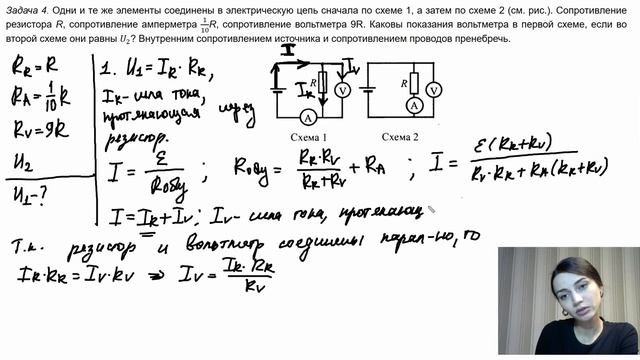 Задача 4. Одни и те же элементы соединены в электрическую цепь сначала по схеме 1, а затем по схеме 2 (см. рис.). Сопротивление
резистора R, сопротивление амперметра 1/10 R, сопротивление вольтметра 9R. Каковы показания вольтметра в первой схеме, если во
второй схеме они равны U₂? Внутренним сопротивлением источника и сопротивлением проводов пренебречь.
R_R = R
R_A = 1/10 R
R_V = 9R
U₂
U₁ - ?
1. U₁ = I_R · R_R,
I_R - сила тока,
протекающая через
резистор.
I I_R I_V
R V A
Схема 1
R V A
Схема 2
I = ℰ/R_общ ; R_общ = R_R·R_V/(R_R+R_V) + R_A ; I = ℰ(R_R+R_V)/(R_V·R_R+R_A(R_R+R_V))
I = I_R + I_V ; I_V - сила тока, протекающ
Т.к. резистор и вольтметр соединены парал-но, то
I_R·R_R = I_V·R_V ⇒ I_V = I_R·R_R/R_V